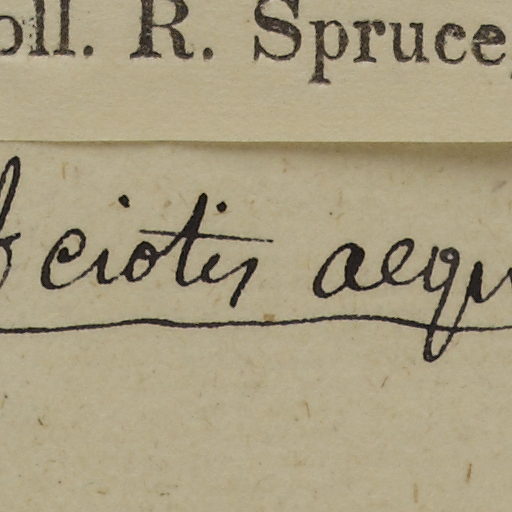 oll. R. Spruce,
ciotis aequ